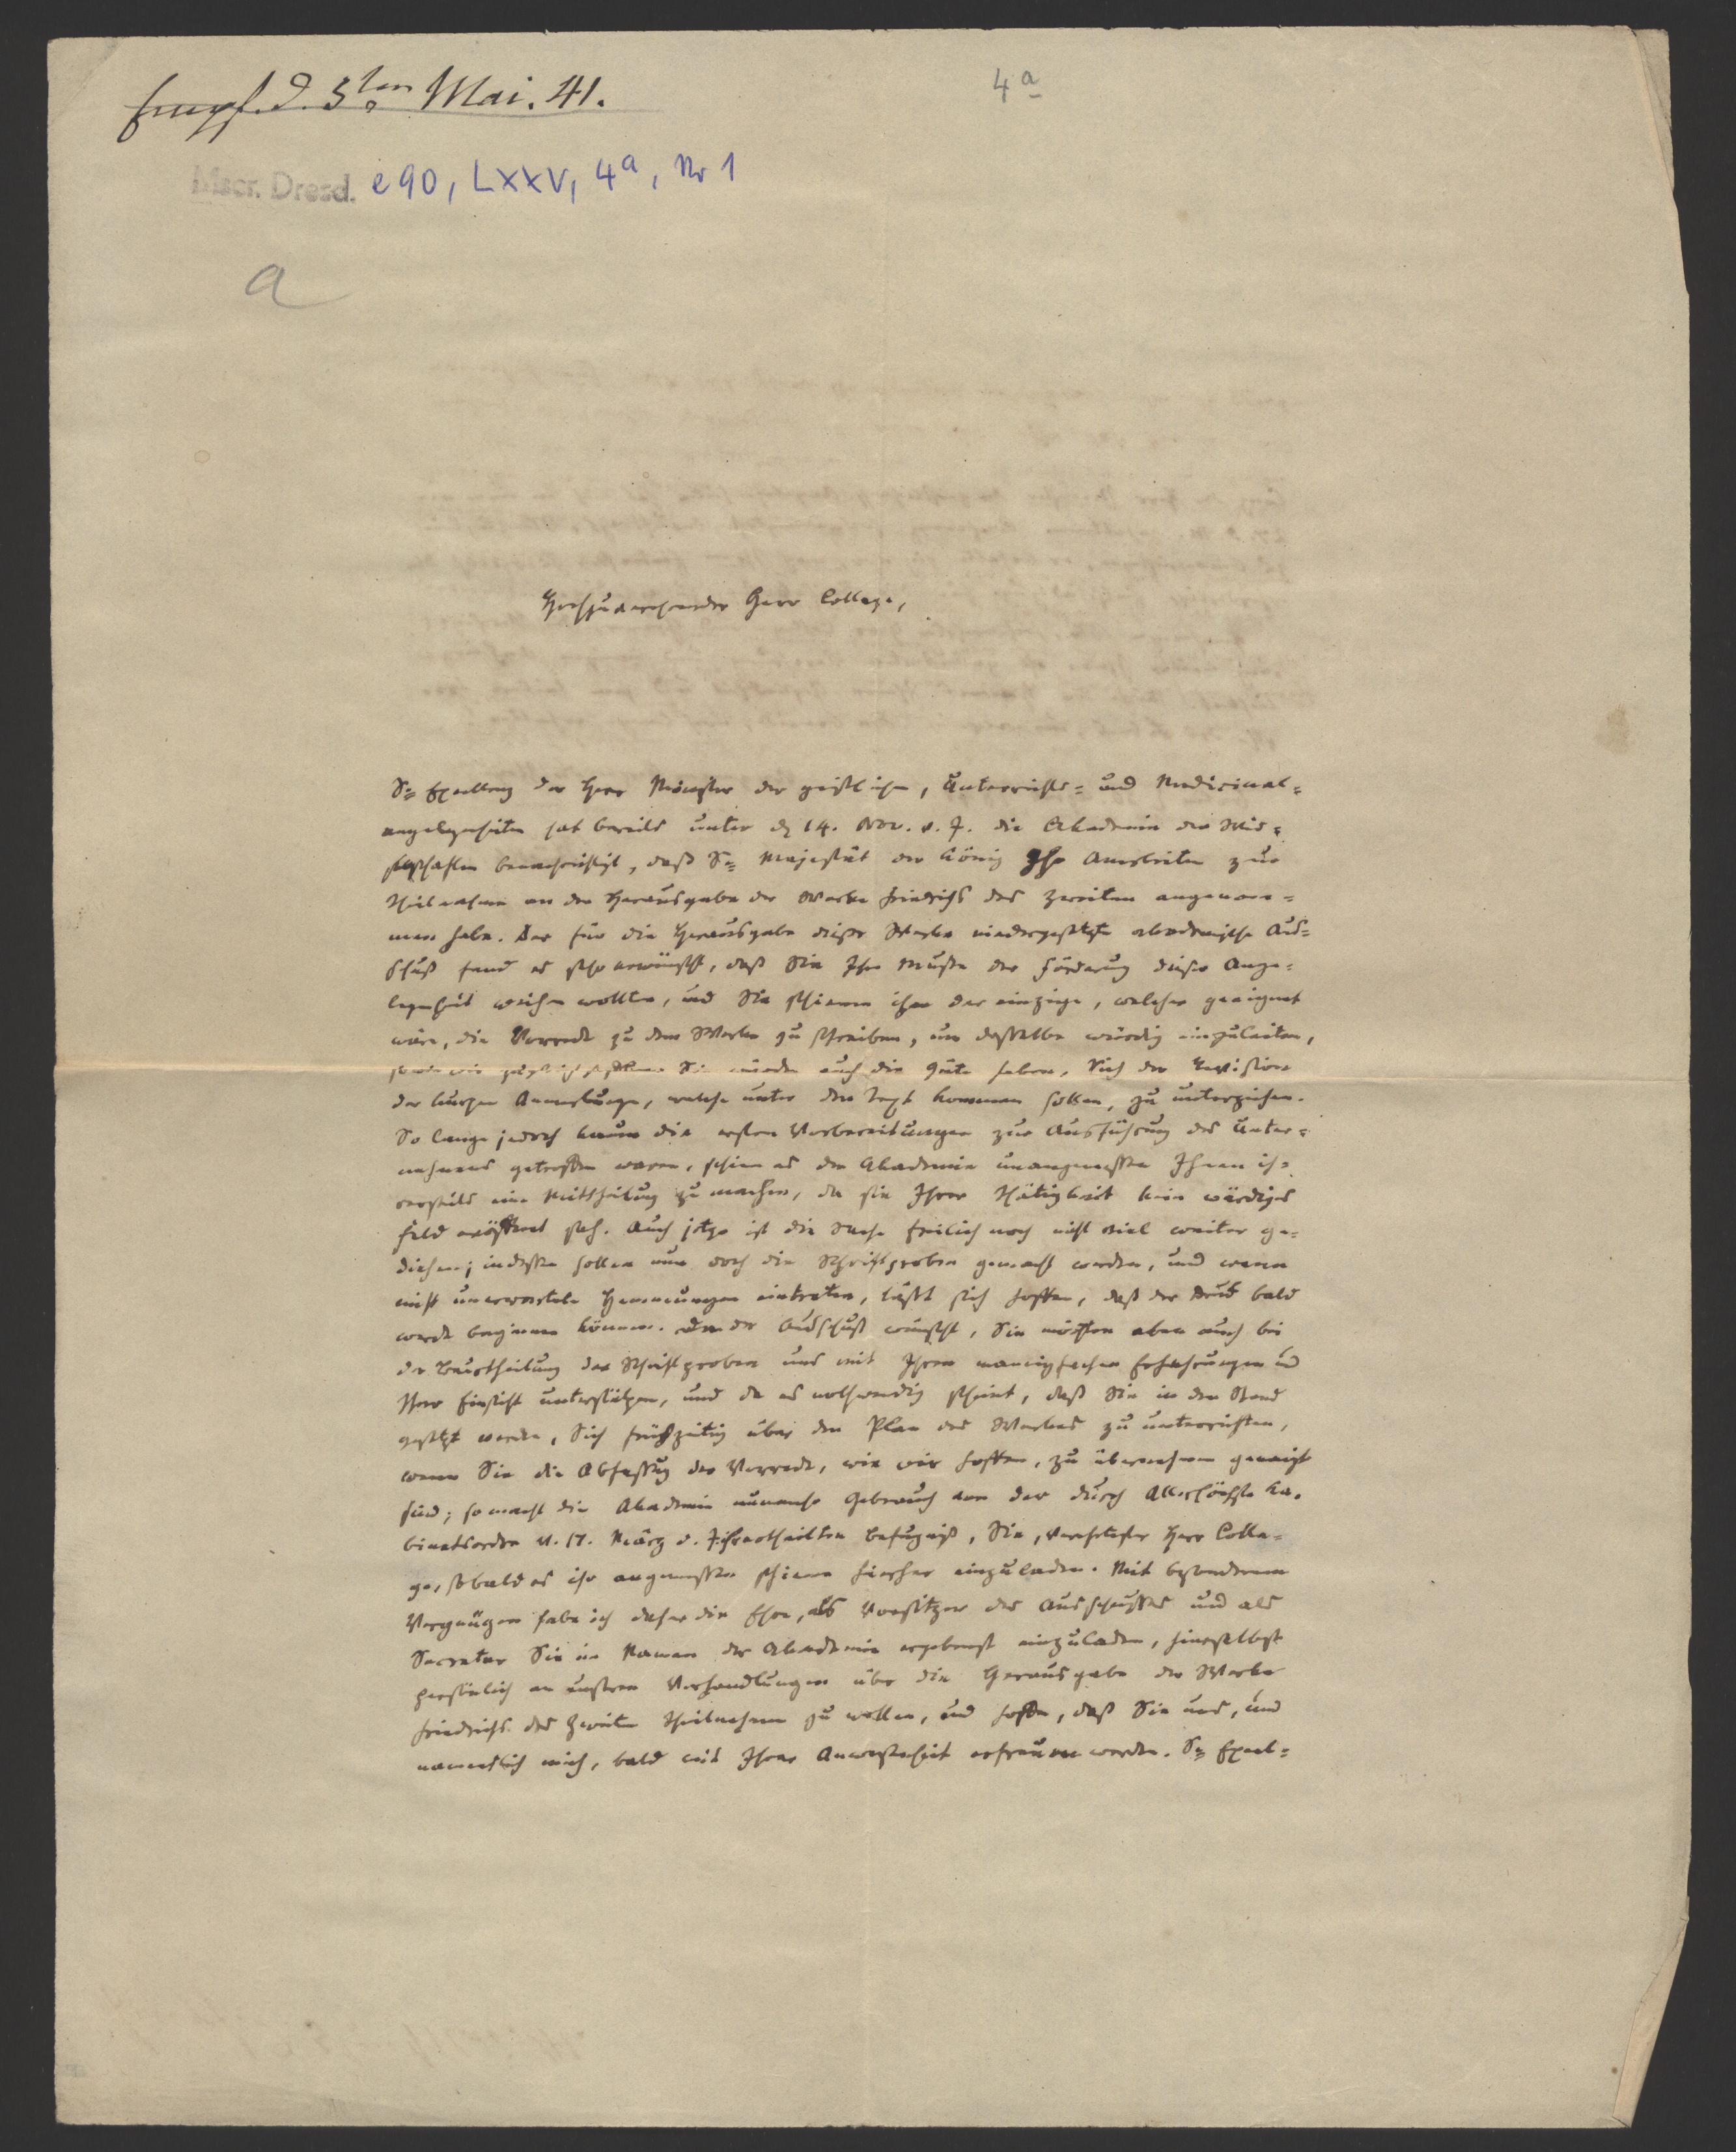 Empf. d. 3ten Mai. 41.
4a
Mscr. Dresd. e 90, LXXV, 4a, Nr 1
a
Hochzuverehrender Herr College,
Se Excellenz der Herr Minister der geistlichen, Unterrichts- und Medicinal-
angelegenheiten hat bereits unter d 14. Nov. v. J. die Akademie der Wis-
senschaften benachrichtigt, daß Se Majestät der König Ihr Anerbieten zur
Theilnahme an der Herausgabe der Werke Friedrichs des Zweiten angenom-
men habe. Der für die Herausgabe dieser Werke niedergesetzte akademische Aus-
schuß fand es sehr erwünscht, daß Sie Ihre Muße der Förderung dieser Ange-
legenheit weihen wollten, und Sie schienen ihm der einzige, welcher geeignet
wäre, die Vorrede zu dem Werke zu schreiben, um dasselbe würdig einzuleiten,
Sie würden auch die Güte haben, Sich der Revision
der kurzen Anmerkungen, welche unter den Text kommen sollen, zu unterziehen.
So lange jedoch kaum die ersten Vorbereitungen zur Ausführung des Unter-
nehmens getroffen waren, schien es der Akademie unangemessen Ihnen ih-
rerseits eine Mittheilung zu machen, da sie Ihrer Thätigkeit kein würdiges
Feld eröffnet sah. Auch jetzo ist die Sache freilich noch nicht viel weiter ge-
diehen; indessen sollen nun doch die Schriftproben gemacht werden, und wenn
nicht unerwartete Hemmungen eintreten, läßt sich hoffen, daß der Druck bald
werde beginnen können. Da der Ausschuß wünscht, Sie möchten eben auch bei
der Beurtheilung der Schriftproben uns mit Ihren mannigfachen Erfahrungen und
Ihrer Einsicht unterstützen, und da es nothwendig scheint, daß Sie in den Stand
gesetzt werden, Sich frühzeitig über den Plan des Werkes zu unterrichten,
wenn Sie die Abfassung der Vorrede, wie wir hoffen, zu übernehmen geneigt
sind; so macht die Akademie nunmehr Gebrauch von der durch Allerhöchste Ka-
binetsordre v. 17. März d. J. ihr ertheilten Befugniß, Sie, verehrtester Herr Colle-
ge, sobald es ihr angemessen schiene hierher einzuladen. Mit besonderem
Vergnügen habe ich daher die Ehre, als Vorsitzer des Ausschusses und als
Secretar Sie im Namen der Akademie ergebenst einzuladen, hierselbst
persönlich an unseren Verhandlungen über die Herausgabe der Werke
Friedrichs des Zweiten theilnehmen zu wollen, und hoffe, daß Sie uns, und
namentlich mich, bald mit Ihrer Anwesenheit erfreuen werden. Se Excel-